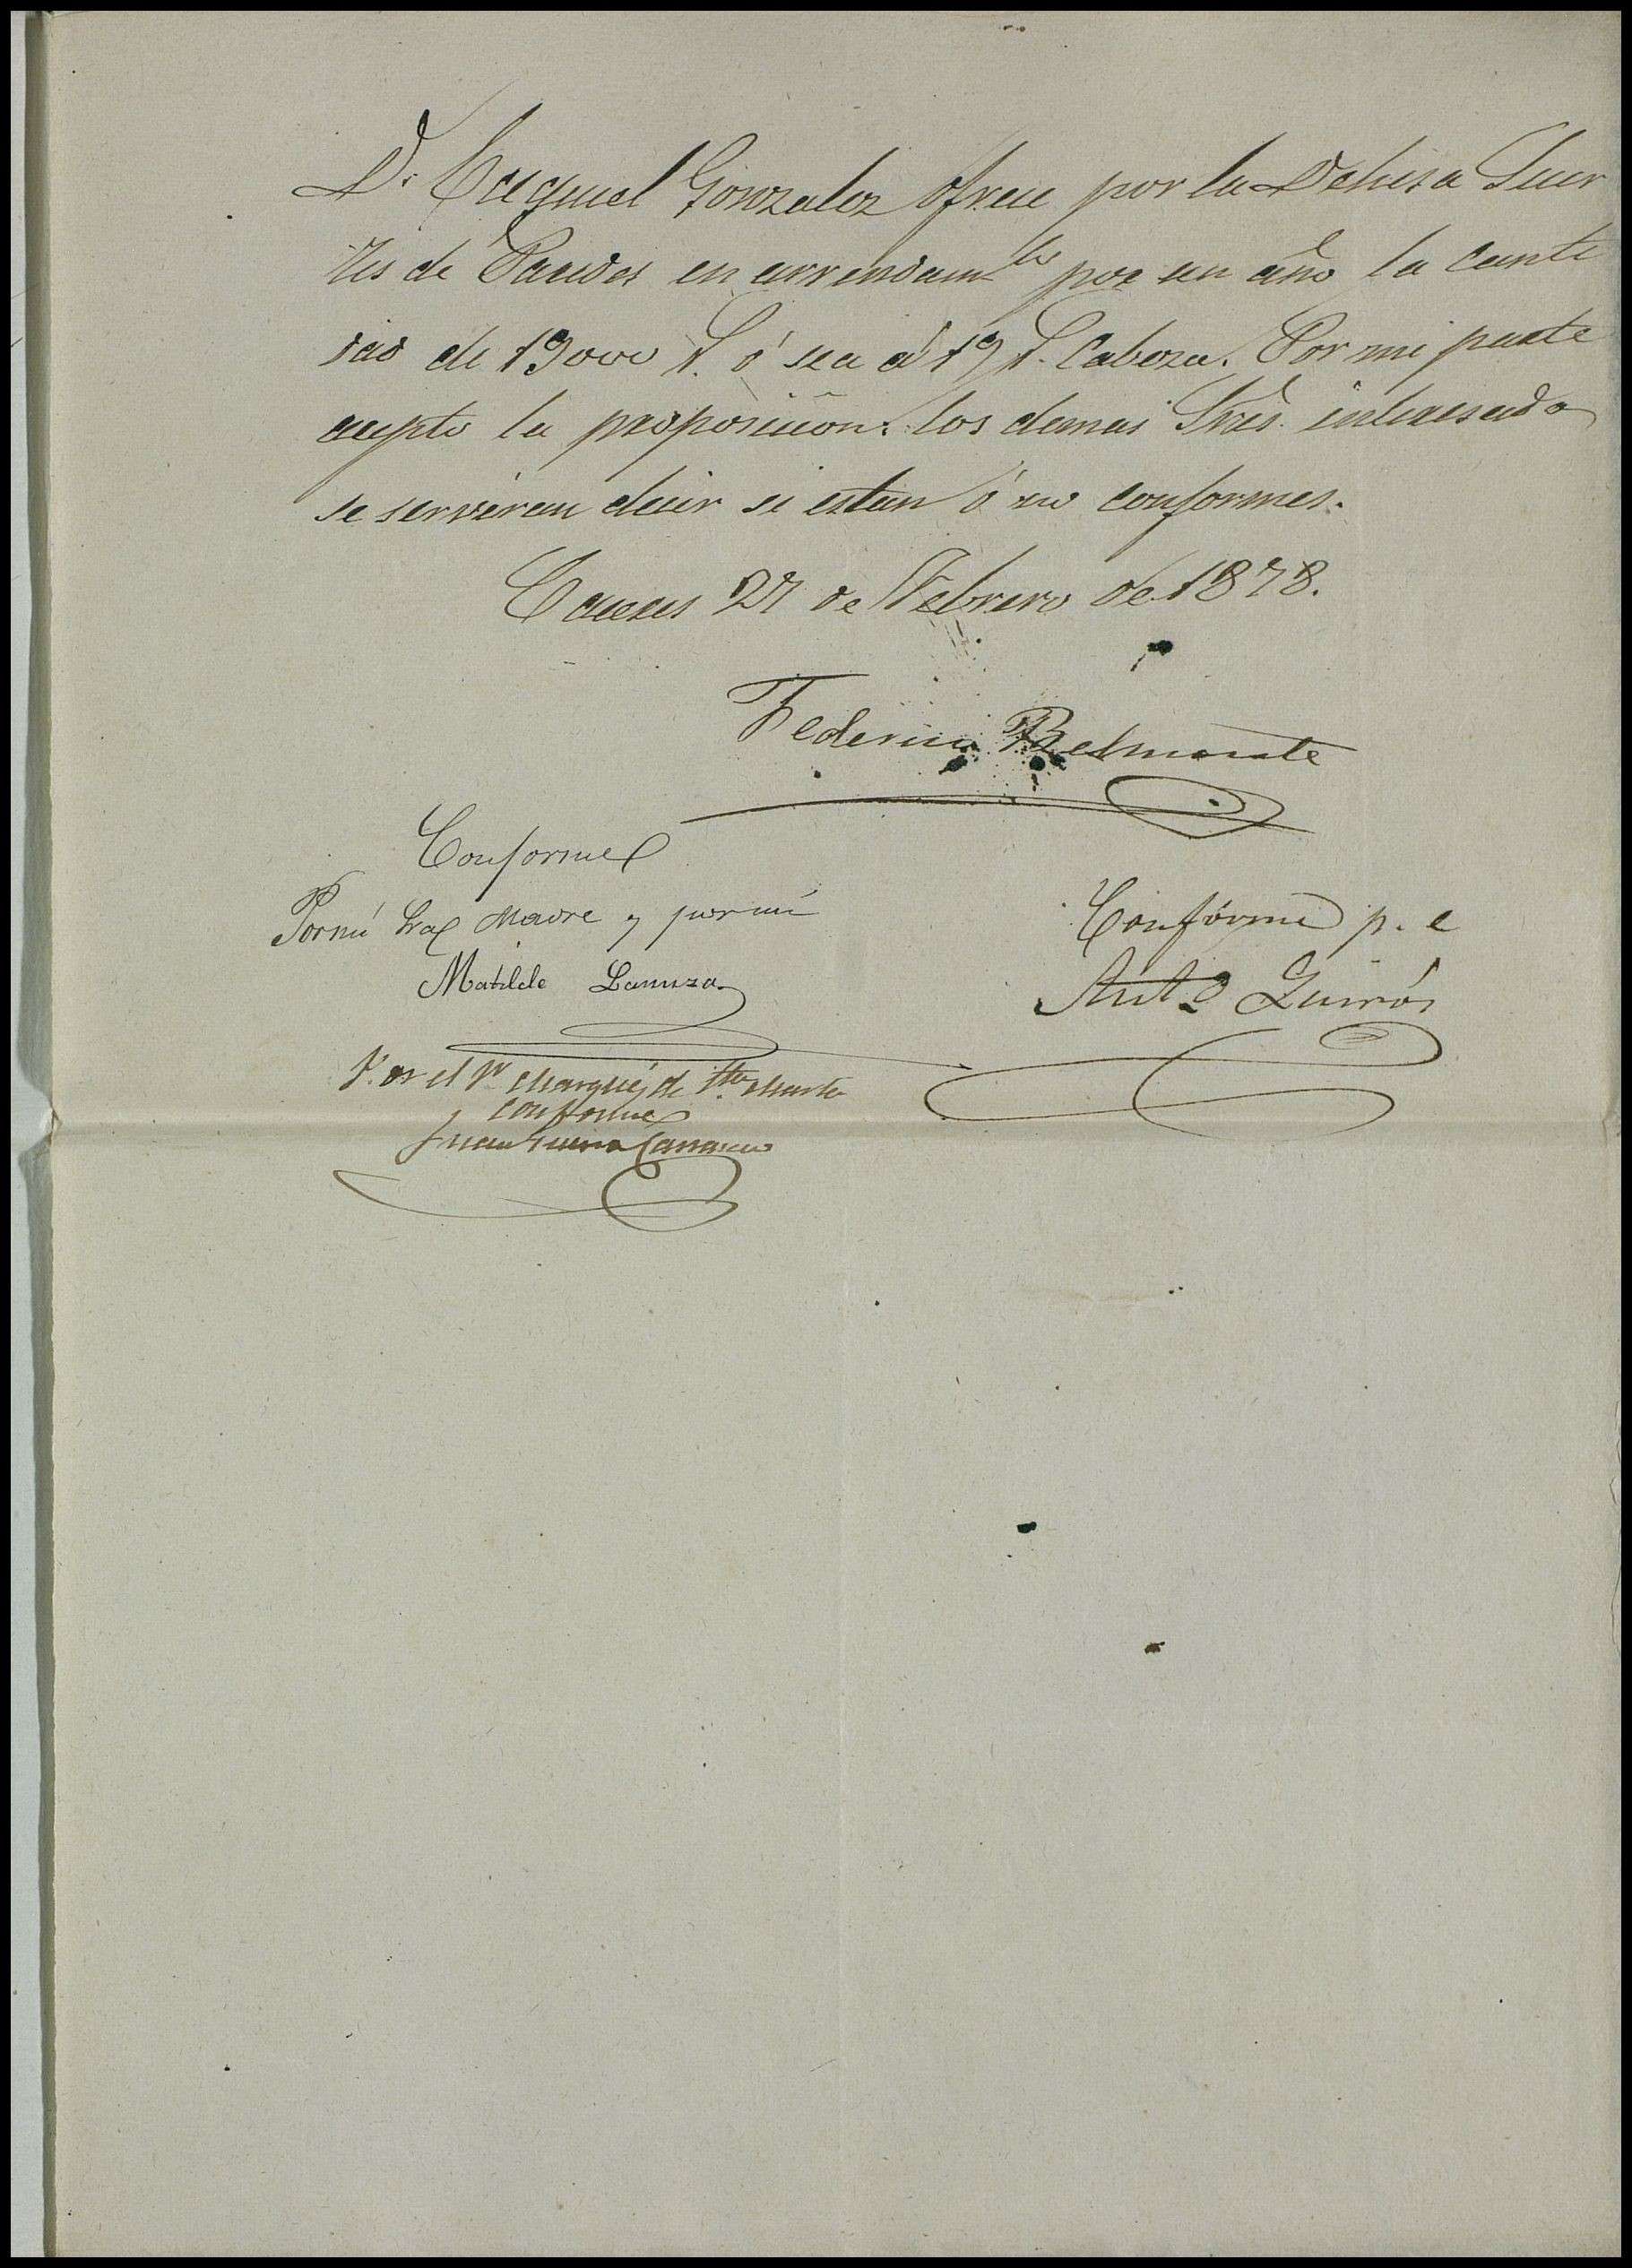 D. Ezequiel Gonzalez ofrece por la Dehesa Suer
tes de Paredes en arrendam.to por un año la canti
dad de 19000 r. ó sea á 19 r. Cabeza. Por mi parte
acepto la proposicion: los demas Sres. interesados
se serviran decir si estan ó no conformes.
Caceres 27 de Febrero de 1878.
Federico Belmonte
Conforme
Por mi Sra Madre y por mi
Matilde Lanuza
Conforme p. e
Ant.o Quirós
Por el Sr Marqués de Sta Marta
conforme
Juan Guerra Carrasco